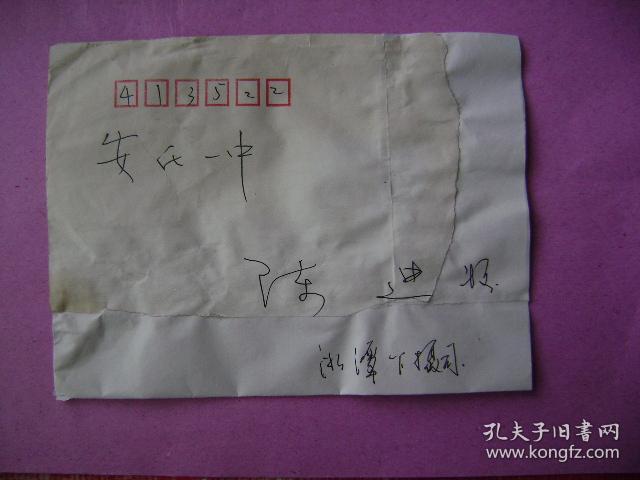 413522
安化一中
陈迪 收
湘潭下摄司
孔夫子旧書网
www.kongfz.com